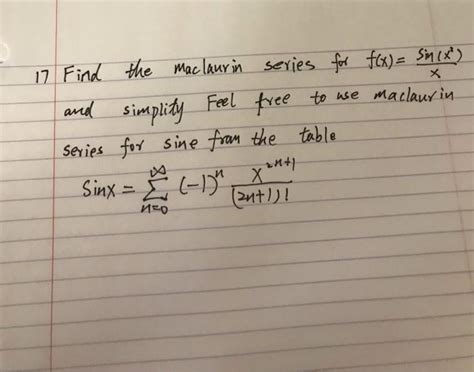 17 Find the maclaurin series for f(x) = sin(x²)/x
and simplify Feel free to use maclaurin
series for sine from the table
Sinx = ∑_{n=0}^{∞} (-1)^n x^{2n+1}/(2n+1)!